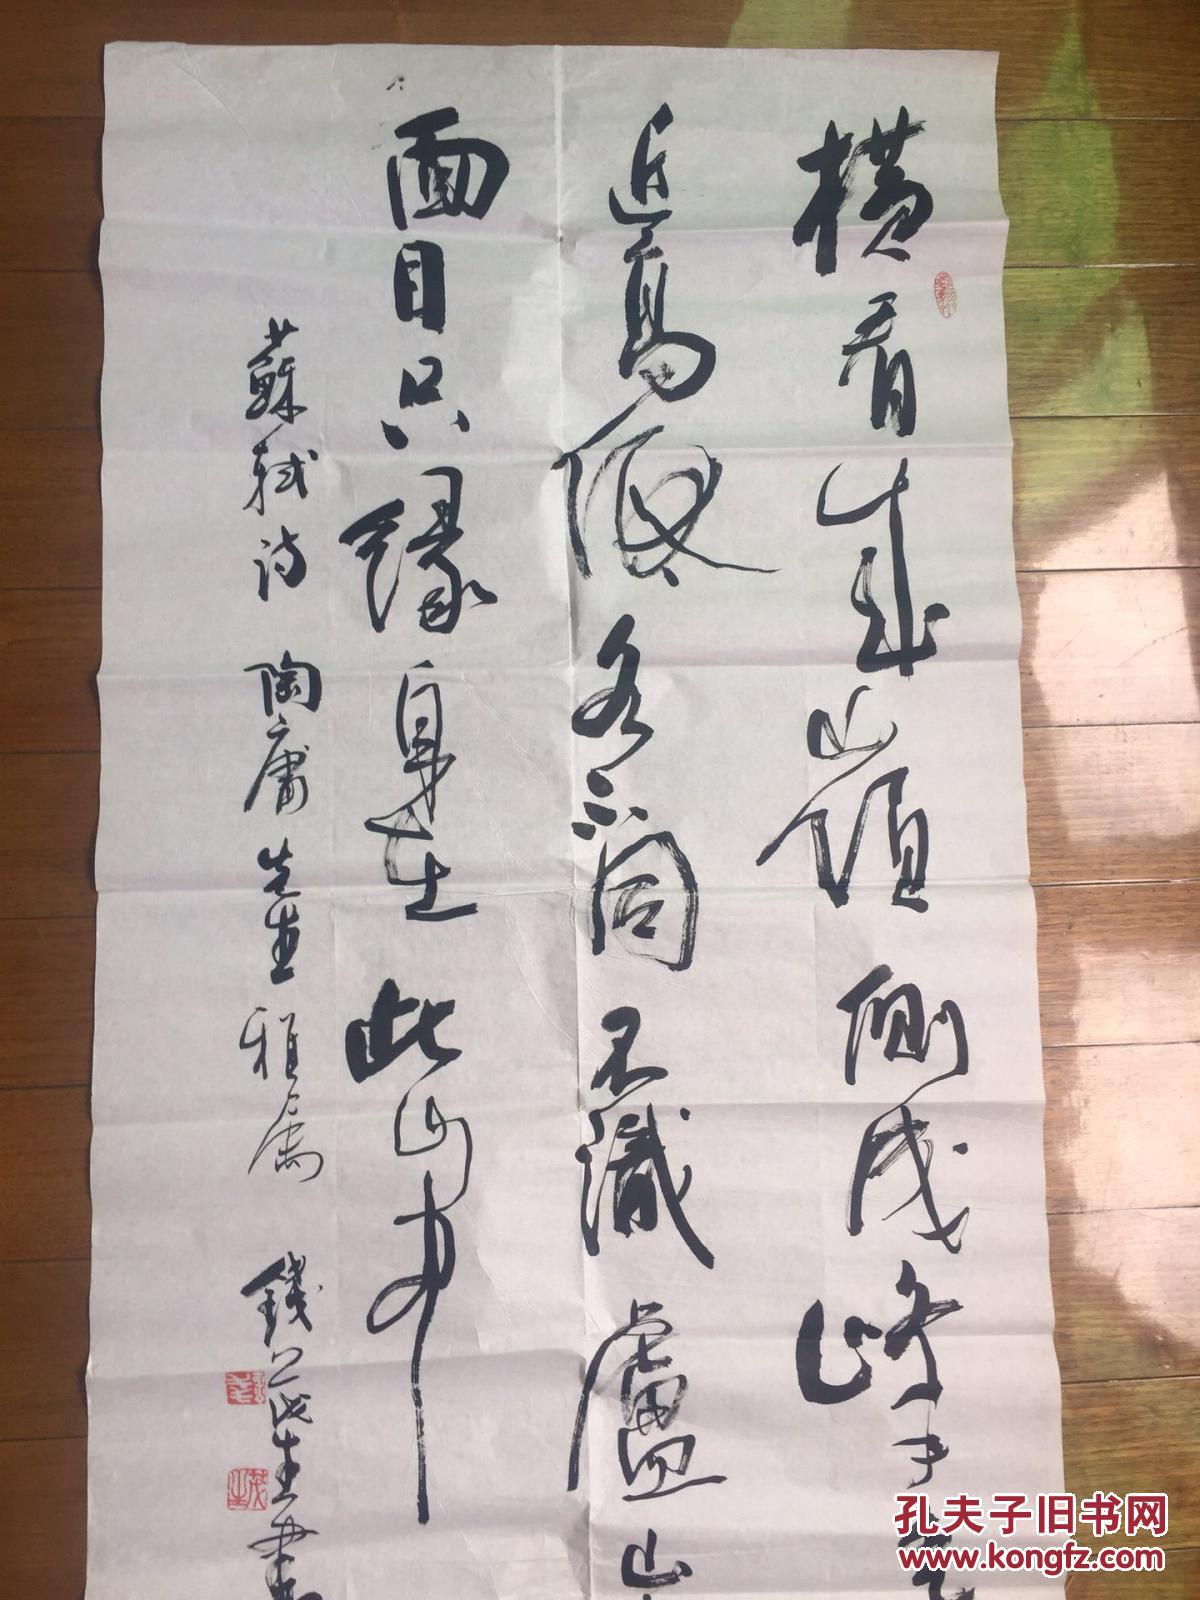 横看成岭侧成峰远
近高低各不同不識廬山
面目只緣身在此山中
蘇軾诗 陶庸先生雅属 錢茂生書
孔夫子旧书网
www.kongfz.com